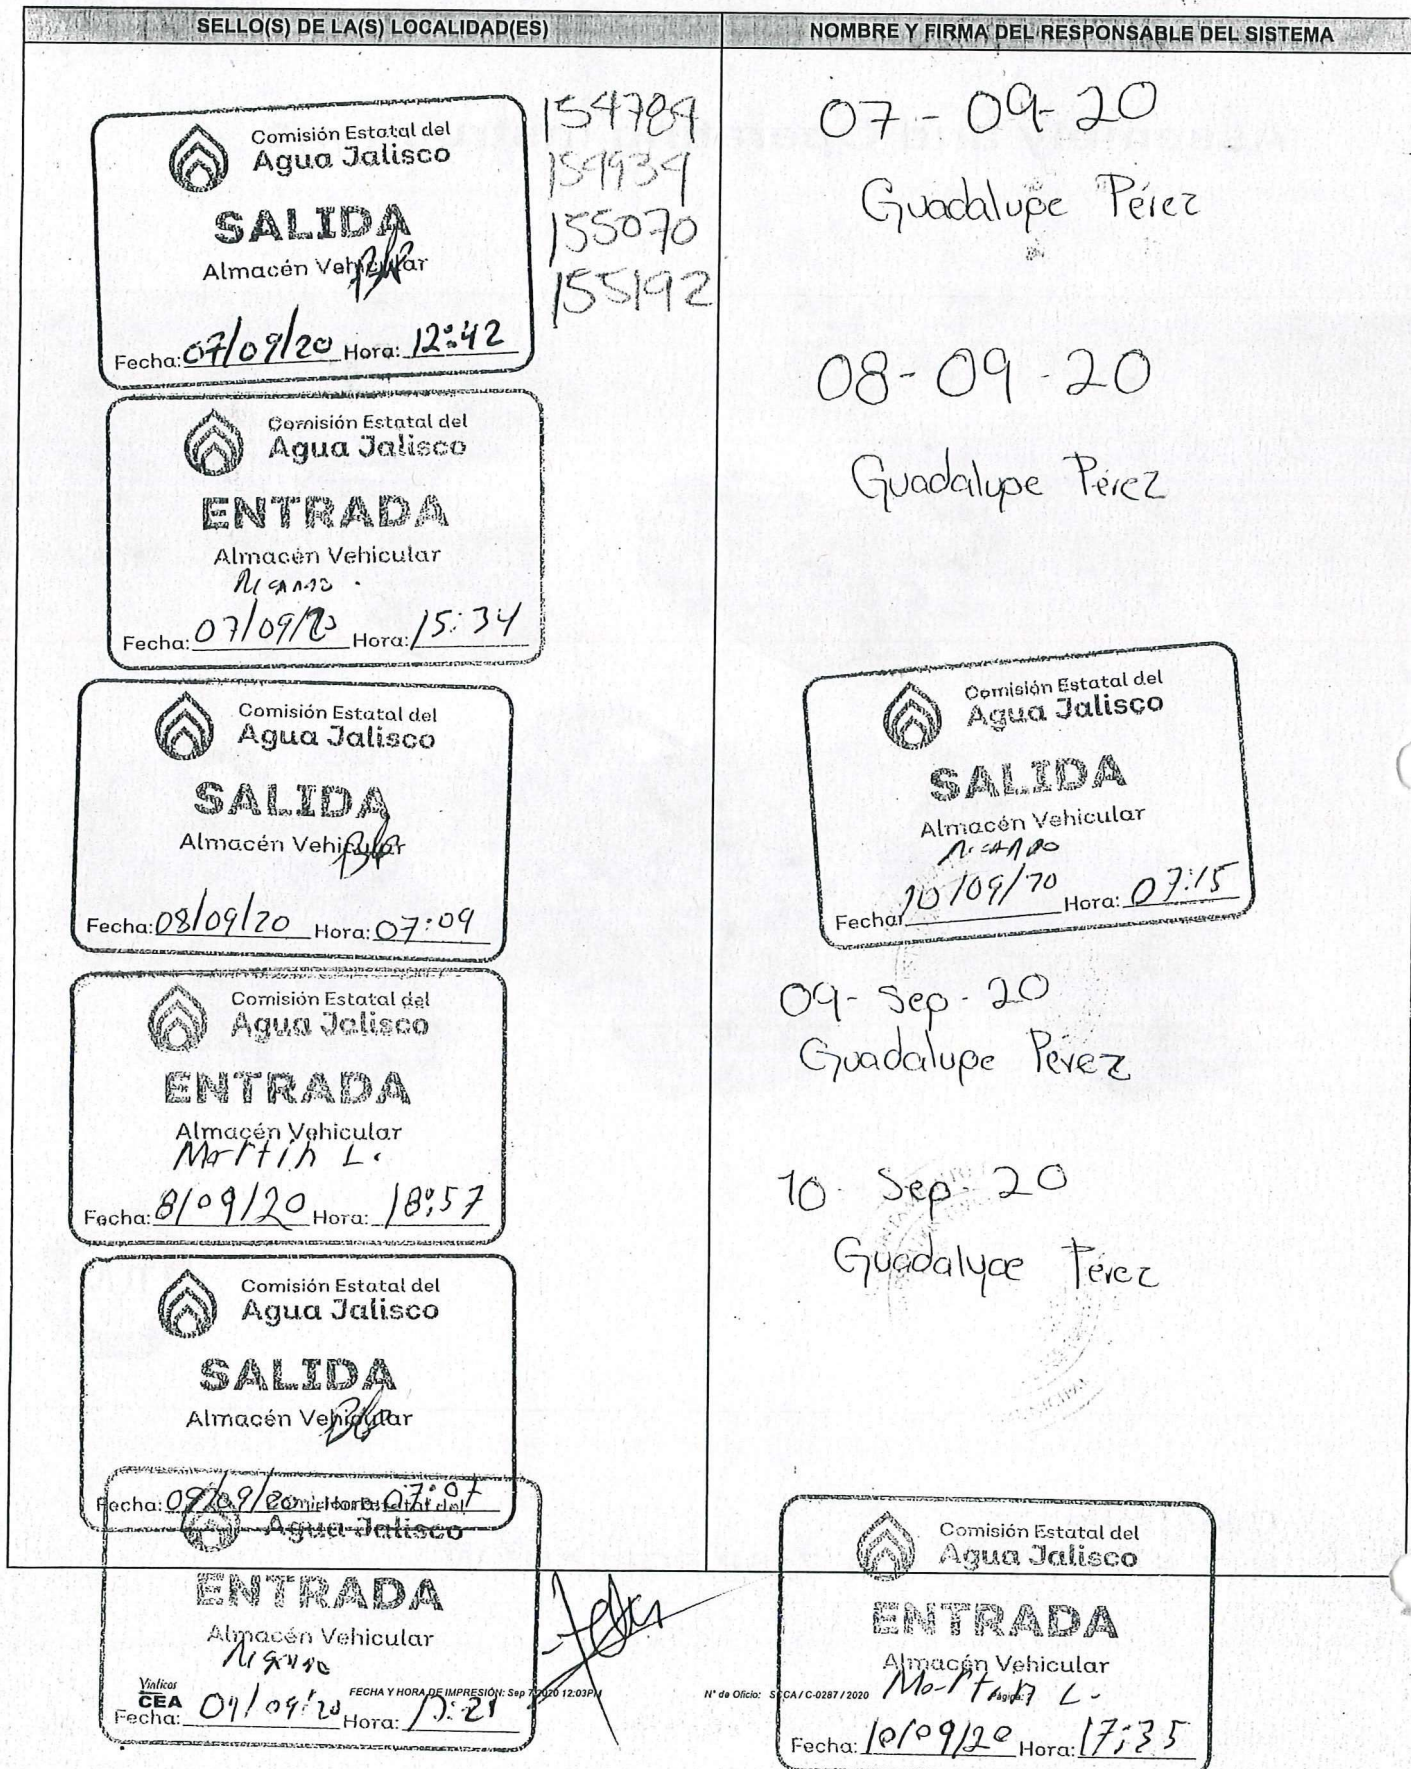 SELLO(S) DE LA(S) LOCALIDAD(ES)
Comisión Estatal del
Agua Jalisco
SALIDA
Almacén Vehicular
Fecha: 07/09/20 Hora: 12:42
154784
154934
155070
155192
Comisión Estatal del
Agua Jalisco
ENTRADA
Almacén Vehicular
Ricardo
Fecha: 07/09/20 Hora: 15:34
Comisión Estatal del
Agua Jalisco
SALIDA
Almacén Vehicular
Fecha: 08/09/20 Hora: 07:09
Comisión Estatal del
Agua Jalisco
ENTRADA
Almacén Vehicular
Martin L.
Fecha: 8/09/20 Hora: 18:57
Comisión Estatal del
Agua Jalisco
SALIDA
Almacén Vehicular
Fecha: 09/09/20 Hora: 07:07
Comisión Estatal del
Agua Jalisco
ENTRADA
Almacén Vehicular
Ricardo
Fecha: 09/09/20 Hora:
NOMBRE Y FIRMA DEL RESPONSABLE DEL SISTEMA
07-09-20
Guadalupe Pérez
08-09-20
Guadalupe Pérez
Comisión Estatal del
Agua Jalisco
SALIDA
Almacén Vehicular
Ricardo
Fecha: 10/09/20 Hora: 07:15
09-Sep-20
Guadalupe Pérez
10-Sep-20
Guadalupe Pérez
Comisión Estatal del
Agua Jalisco
ENTRADA
Almacén Vehicular
Martin L.
Fecha: 10/09/20 Hora: 17:35
Viáticos
CEA
FECHA Y HORA DE IMPRESIÓN: Sep 7 2020 12:03PM
N° de Oficio: SCCA / C-0287 / 2020